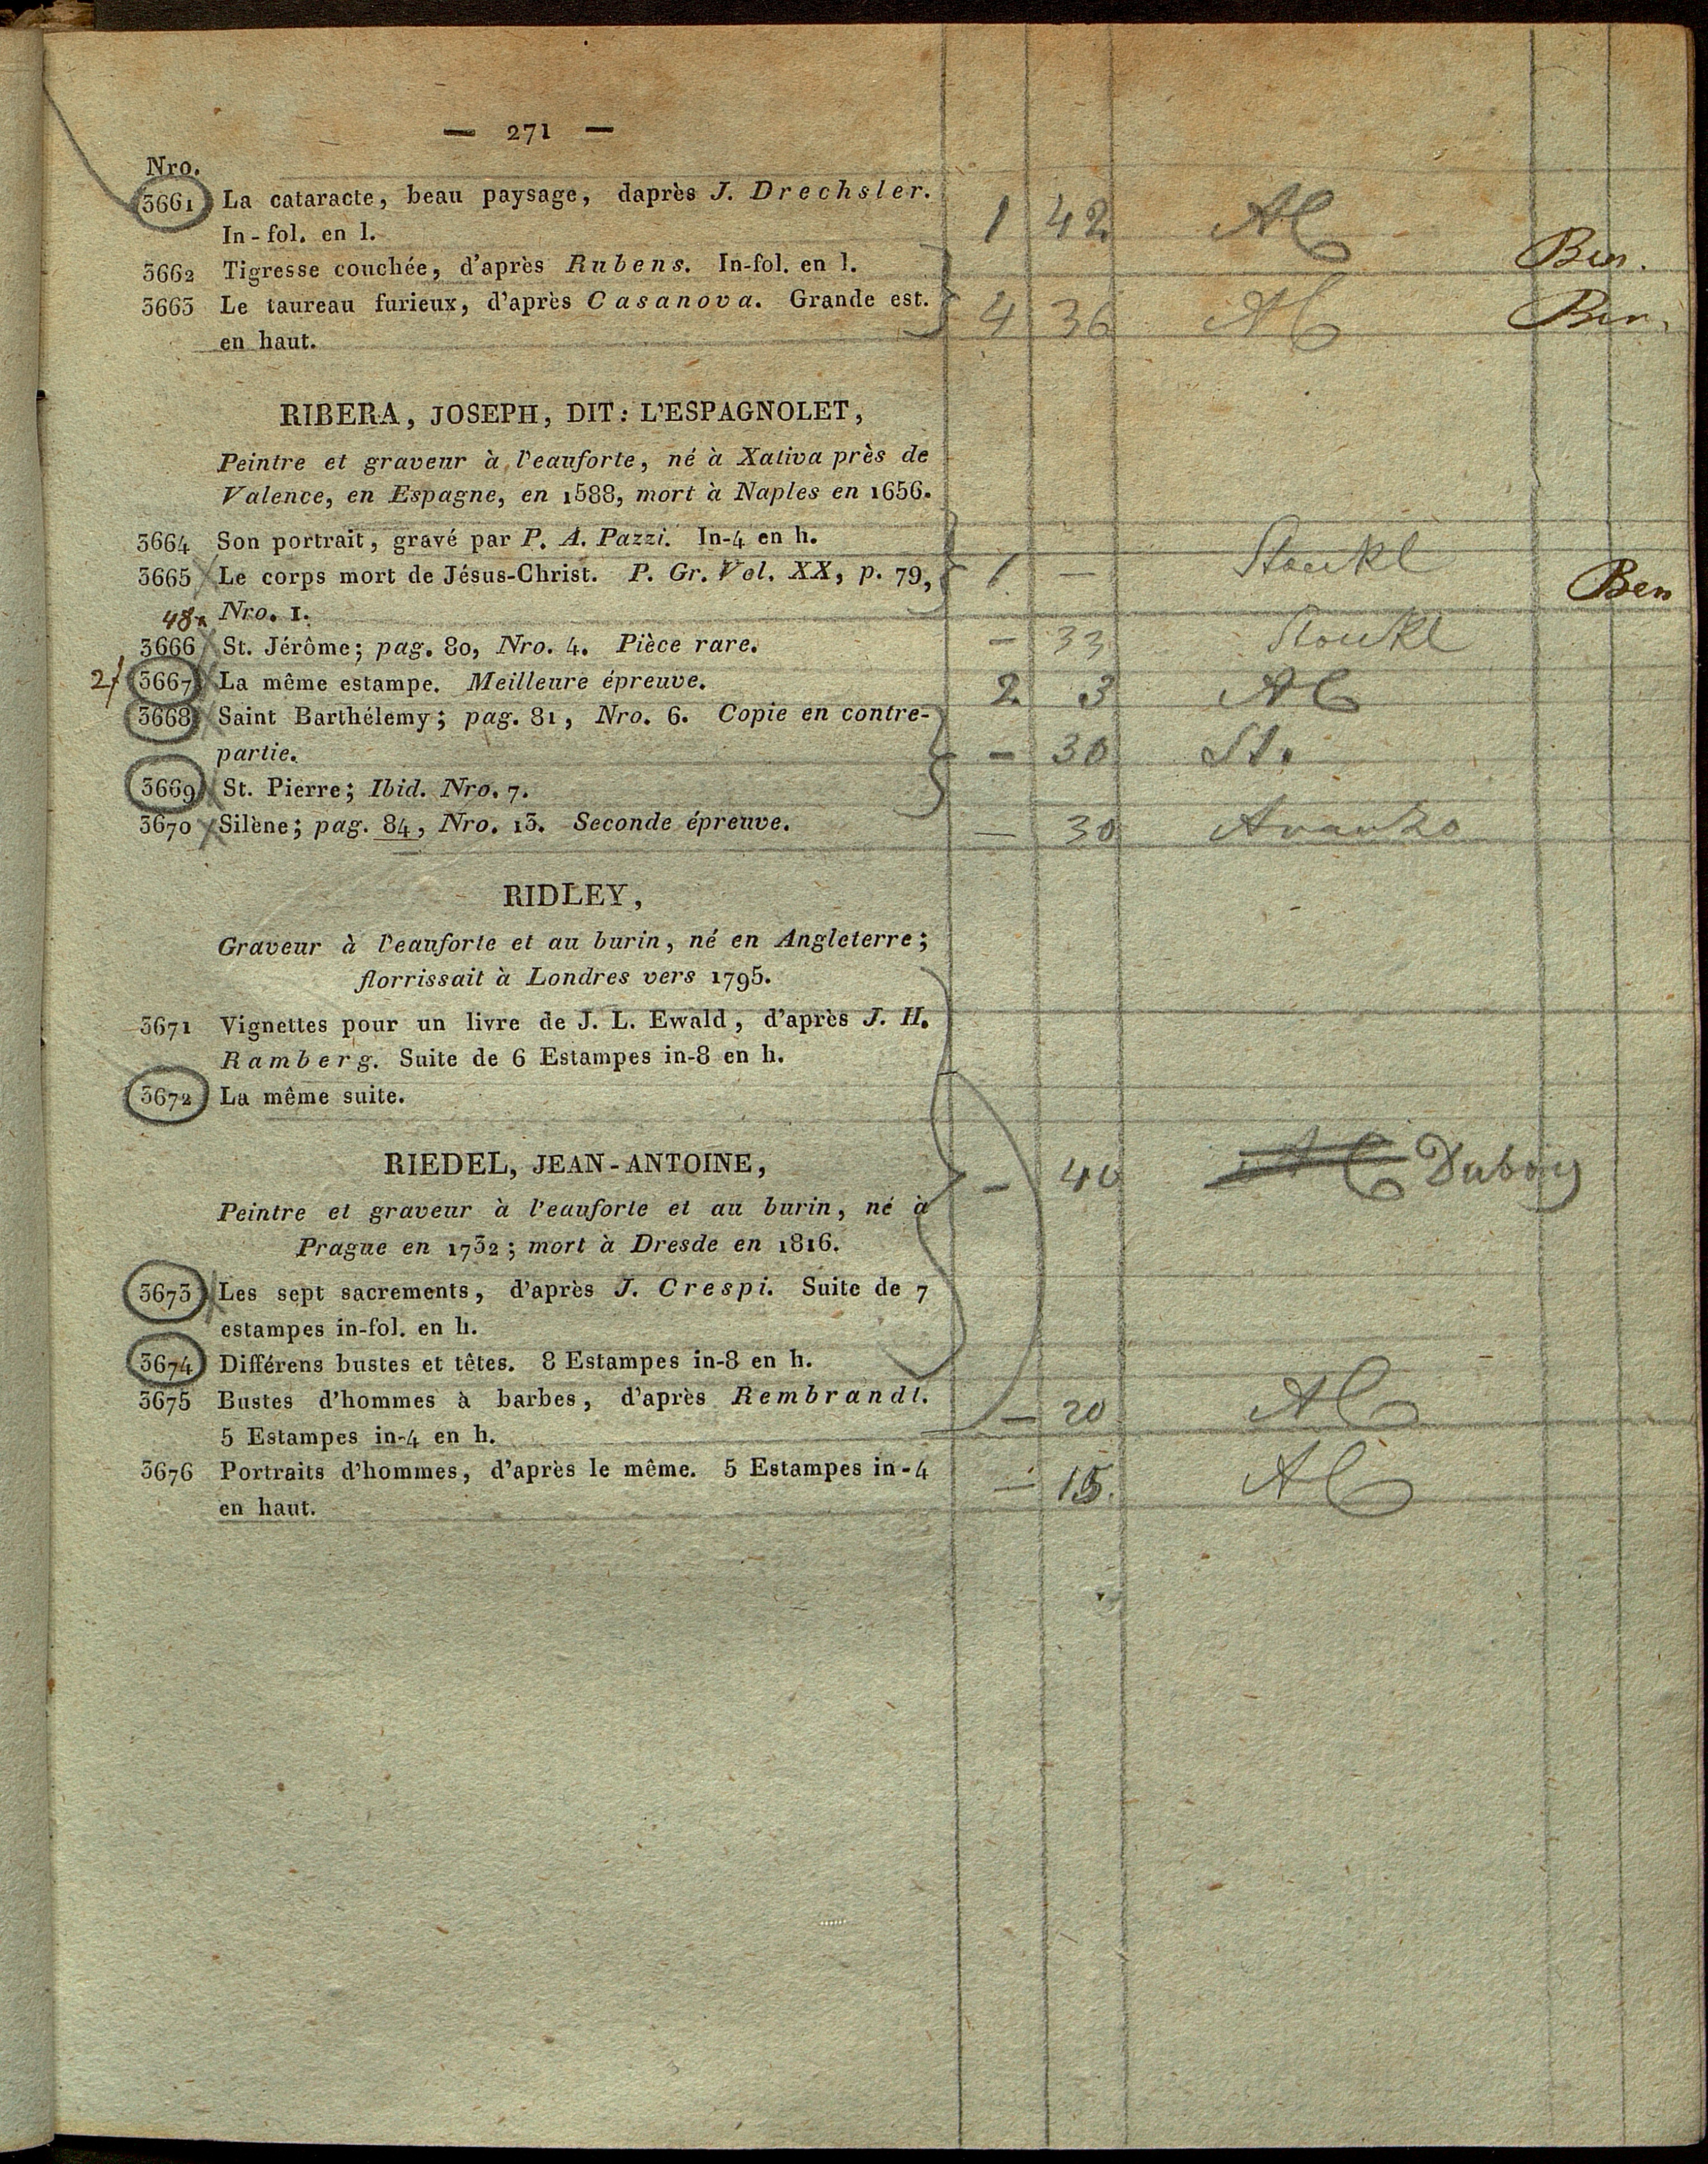 — 271 —
Nro.
3661 La cataracte, beau paysage, daprès J. Drechsler.
In-fol. en l.
1 42 AC
3662 Tigresse couchée, d'après Rubens. In-fol. en l.
Ben.
3663 Le taureau furieux, d'après Casanova. Grande est.
en haut.
4 36 AC Ben.
RIBERA, JOSEPH, DIT: L'ESPAGNOLET,
Peintre et graveur à l'eauforte, né à Xativa près de
Valence, en Espagne, en 1588, mort à Naples en 1656.
3664 Son portrait, gravé par P. A. Pazzi. In-4 en h.
3665 Le corps mort de Jésus-Christ. P. Gr. Vol. XX, p. 79,
Nro. 1.
1 — Stoukl Ben
48x
3666 St. Jérôme; pag. 80, Nro. 4. Pièce rare. — 33 Stoukl
2f 3667 La même estampe. Meilleure épreuve. 2 3 AC
3668 Saint Barthélemy; pag. 81, Nro. 6. Copie en contre-
partie. — 30 St.
3669 St. Pierre; Ibid. Nro. 7.
3670 Silène; pag. 84, Nro. 13. Seconde épreuve. — 30 Avanzo
RIDLEY,
Graveur à l'eauforte et au burin, né en Angleterre;
florrissait à Londres vers 1795.
3671 Vignettes pour un livre de J. L. Ewald, d'après J. H.
Ramberg. Suite de 6 Estampes in-8 en h.
3672 La même suite.
RIEDEL, JEAN-ANTOINE,
— 40 AC Duboy
Peintre et graveur à l'eauforte et au burin, né à
Prague en 1732; mort à Dresde en 1816.
3673 Les sept sacrements, d'après J. Crespi. Suite de 7
estampes in-fol. en h.
3674 Différens bustes et têtes. 8 Estampes in-8 en h.
3675 Bustes d'hommes à barbes, d'après Rembrandt.
5 Estampes in-4 en h.
— 20 AC
3676 Portraits d'hommes, d'après le même. 5 Estampes in-4
en haut.
— 15. AC